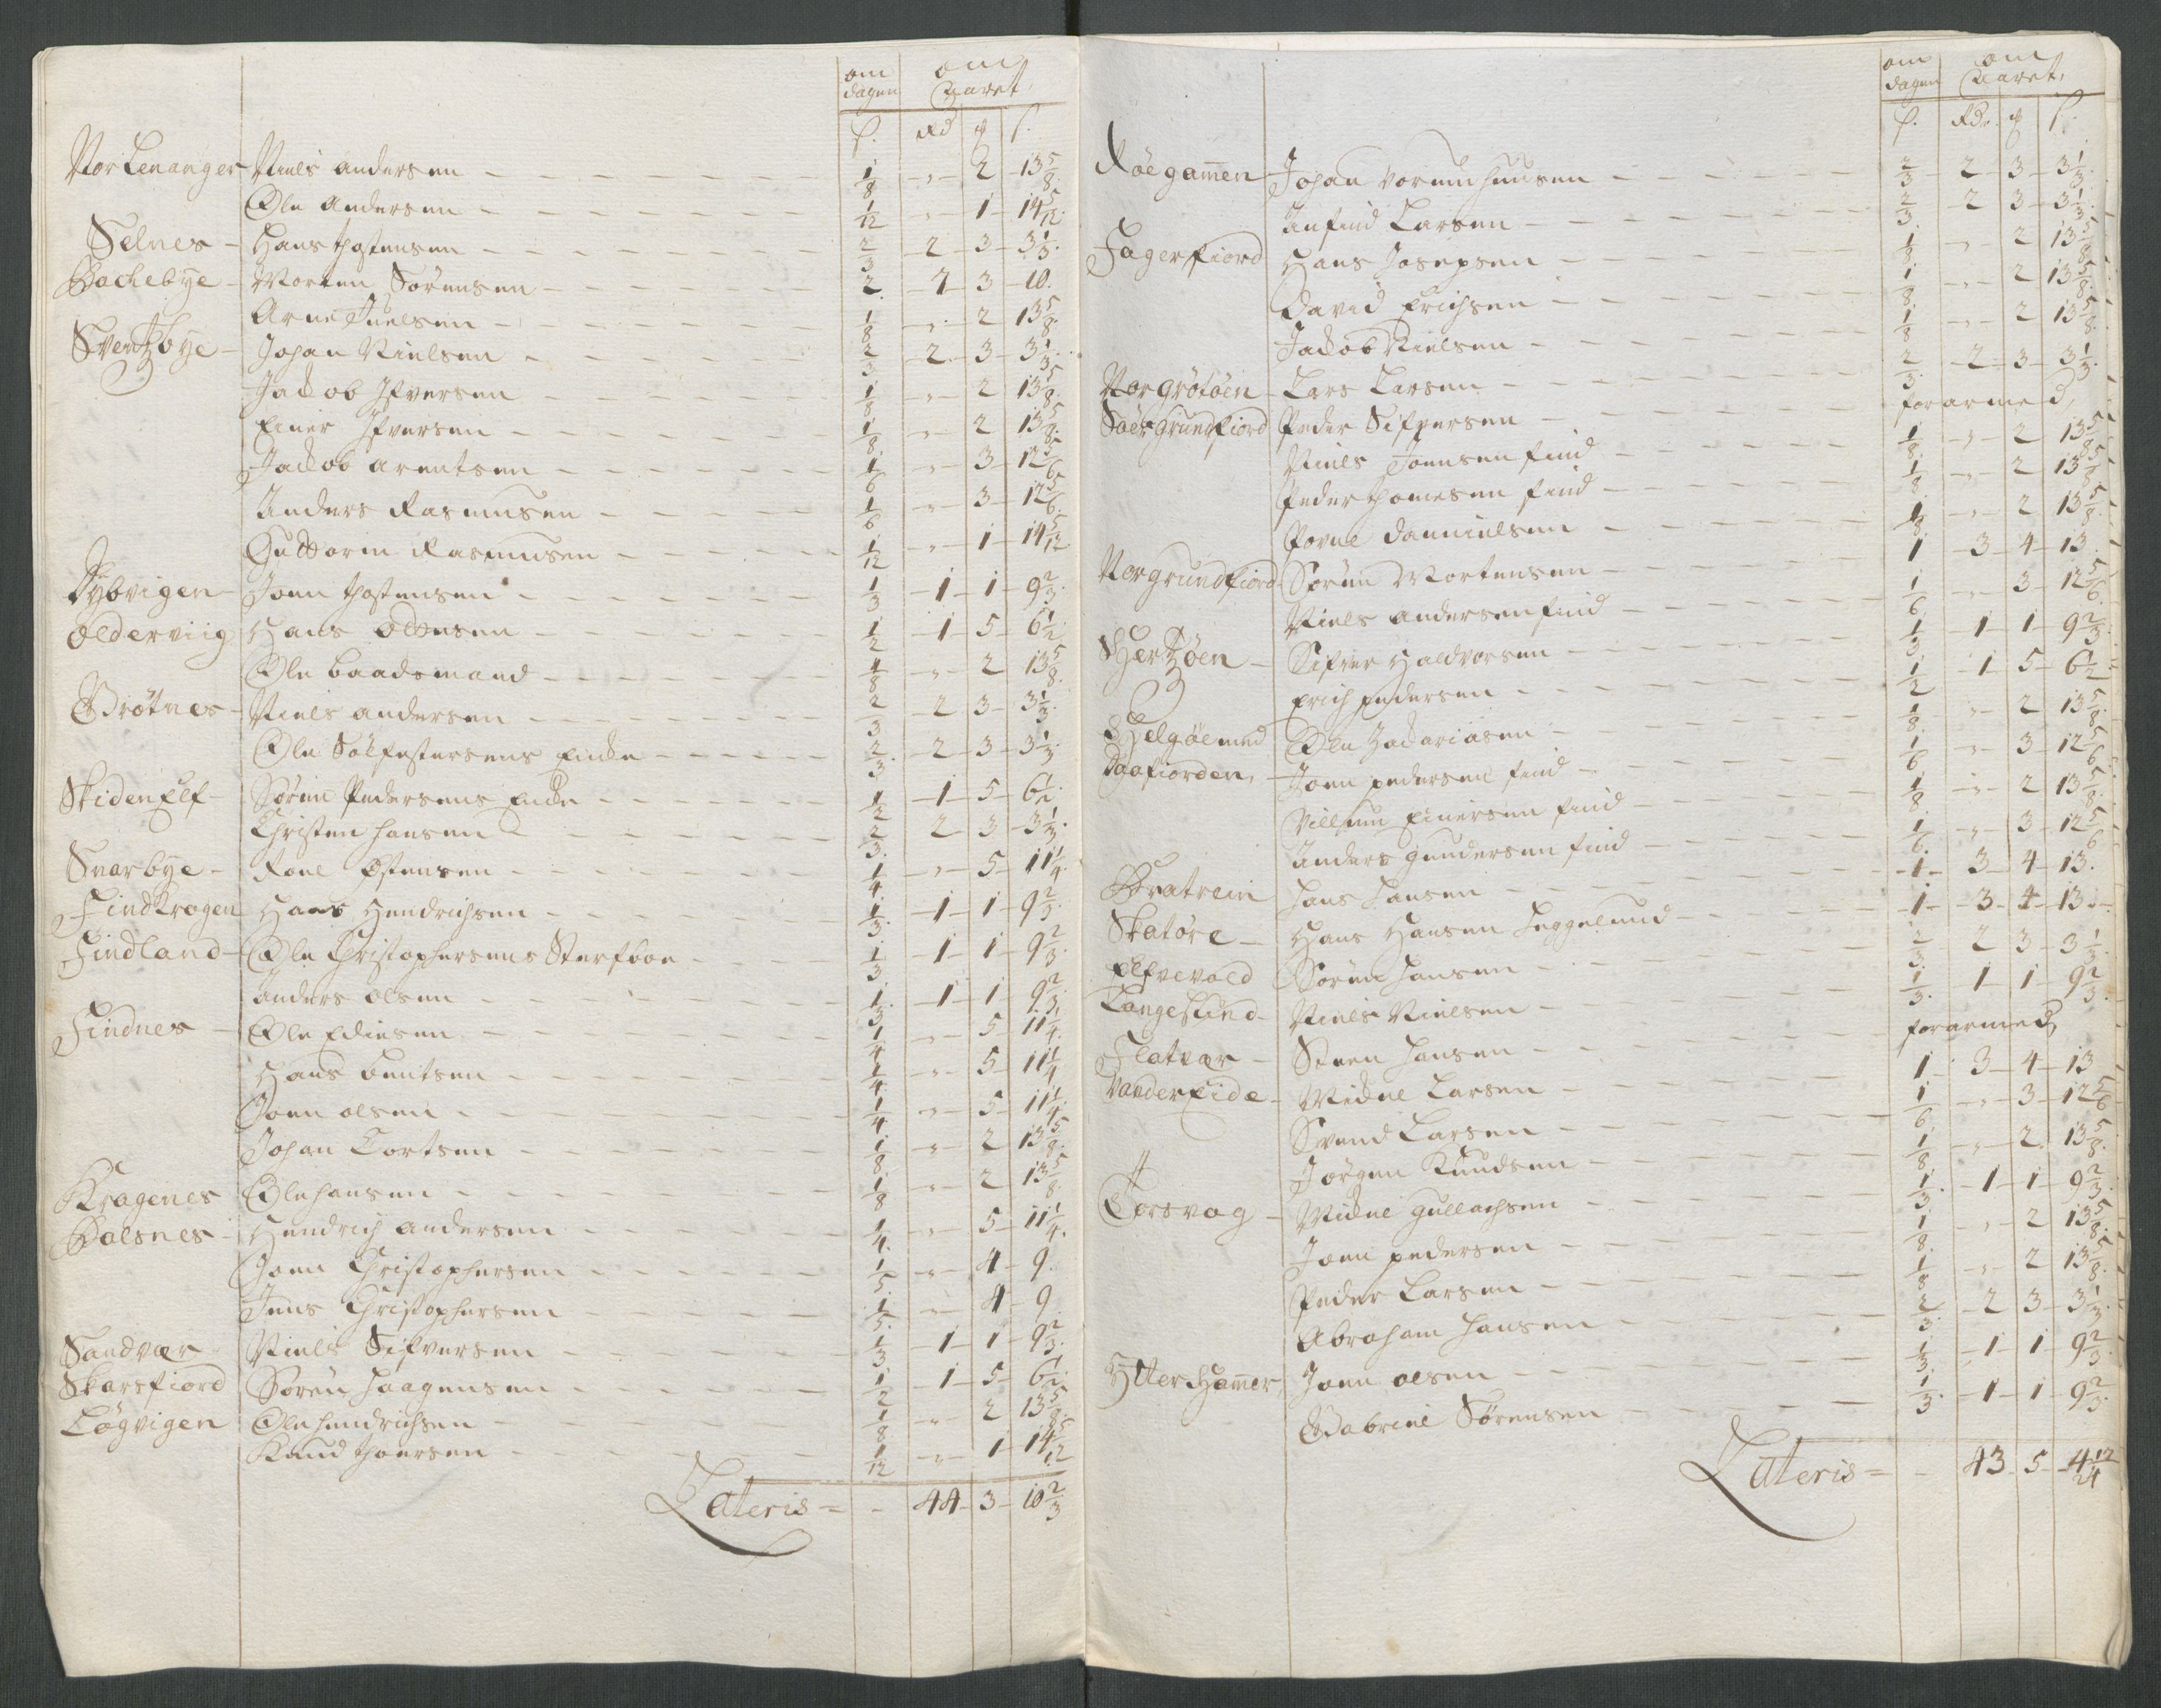 om dagen om Aaret
ß. Rd ȹ ß.
Nor Lenanger Niels Andersen 1/8 - 2 - 13 5/8
Ole Andersen 1/12 - 1 - 14 5/12
Selnes - Hans Thostensen 2/3 - 2 - 3 - 3 1/3
Bachebÿe - Morten Sørensen 2 - 7 - 3 - 10.
Arne Juelsen 1/8 - 2 13 5/8
Svendzbÿe - Johan Nielsen 2/3 - 2 - 3 - 3 1/3
Jacob Ifversen 1/8 - 2 13 5/8
Einer Ifversen 1/8 - 2 13 5/8
Jacob Arentsen 1/6 - 3 - 12 5/6
Anders Rasmusen 1/6 - 3 - 12 5/6
Guttorm Rasmusen 1/12 - 1 - 14 5/12
Dÿbvigen Joen Thostensen 1/3 - 1 - 1 - 9 2/3
Olderviig Hans Ottesen 1/2 - 1 - 5 - 6 1/2
Ole Baadsmand 1/8 - 2 13 5/8
Grøtnes - Niels Andersen 2/3 - 2 - 3 - 3 1/3
Ole Sølfestersens Encke 2/3 - 2 - 3 - 3 1/3
Skidenelf - Sørren Pedersens Encke 1/2 - 1 - 5 - 6 1/2
Christen Hansen 2/3 2 - 3 - 3 1/3
Svarbÿe - Roel Østensen 1/4 - 5 - 11 1/4
Findkrogen Hans Hendrichsen 1/3 - 1 - 1 - 9 2/3
Findland - Ole Christophersens Sterfboe 1/3 - 1 - 1 - 9 2/3
Anders Olsen 1/3 - 1 - 1 9 2/3
Findnes - Ole Ediesen 1/4 - 5 - 11 1/4
Hans Bentsen 1/4 - 5 - 11 1/4
Joen Olsen 1/4 - 5 - 11 1/4
Johan Tortsen 1/8 - 2 13 5/8
Kragenes Ole Hansen 1/8 - 2 13 5/8
Balsnes - Hendrich Andersen 1/4 - 5 - 11 1/4
Joen Christophersen 1/5 - 4 - 9.
Jens Christophersen 1/5 - 4 - 9
Sandvær Niels Sifversen 1/3 - 1 - 1 - 9 2/3
Skarsfiord Søren Haagensen 1/2 - 1 - 5 - 6 1/2
Løgvigen Ole Hendrichsen 1/8 - 2 13 5/8
Knud Thoersen 1/12 - 1 - 14 5/12
Lateris = - 44 - 3 - 10 2/3
om dagen om Aaret
ß. Rdr. ȹ ß.
Røegam̄en Johan Vorumhuusen 2/3 - 2 - 3 - 3 1/3
Anfind Larsen 2/3 - 2 - 3 - 3 1/3
Fagerfiord Hans Josepsen 1/8 - 2 13 5/8
David Erichsen 1/8 - 2 13 5/8
Jacob Nielsen 1/8 - 2 13 5/8
Norgrøtøen Lars Larsen 2/3 - 2 - 3 - 3 1/3
Søergrundfiord Peder Sifversen forarmed,
Niels Joensen find 1/8 - 2 13 5/8
Peder Thomesen find 1/8 - 2 13 5/8
Povel Danielsen 1/8 - 2 13 5/8
Norgrundfiord Søren Mortensen 1 - 3 - 4 - 13.
Niels Andersen find 1/6 - 3 - 12 5/6
Hertzøen - Sifver Haldvorsen 1/3 - 1 - 1 - 9 2/3
Erich Pedersen 1/2 - 1 5 - 6 1/2
Helgøe med Ole Zacariasen 1/8 - 2 13 5/8
Daafiorden, Joen Pedersen find 1/6 - 3 - 12 5/6
Villum Einersen find 1/8 - 2 13 5/8
Anders Gundersen find 1/6 - 3 - 12 5/6
Bratrein Hans Hansen - 1 - 3 - 4 - 13.
Skatøre - Hans Hansen Leggelund - 1 - 3 - 4 - 13.
Elfvevold Søren Hansen 2/3 2 3 - 3 1/3
Langesund - Niels Nielsen 1/3 1 - 1 9 2/3
Flatvær - Steen Hansen forarmed,
Vandereide - Michel Larsen 1 - 3 - 4 - 13
Svend Larsen 1/6 - 3 - 12 5/6
Jørgen Knudsen 1/8 - 2 13 5/8
Torsvog - Michel Gullachsen 1/3 - 1 - 1 - 9 2/3
Joen Pedersen 1/8 - 2 13 5/8
Peder Larsen 1/8 - 2 13 5/8
Abraham Hansen 2/3 - 2 3 - 3 1/3
Ÿtter Ham̄er, Joen Olsen 1/3 - 1 - 1 9 2/3
Gabriel Sørensen 1/3 - 1 - 1 - 9 2/3
Lateris = - 43 - 5 - 4 12/24